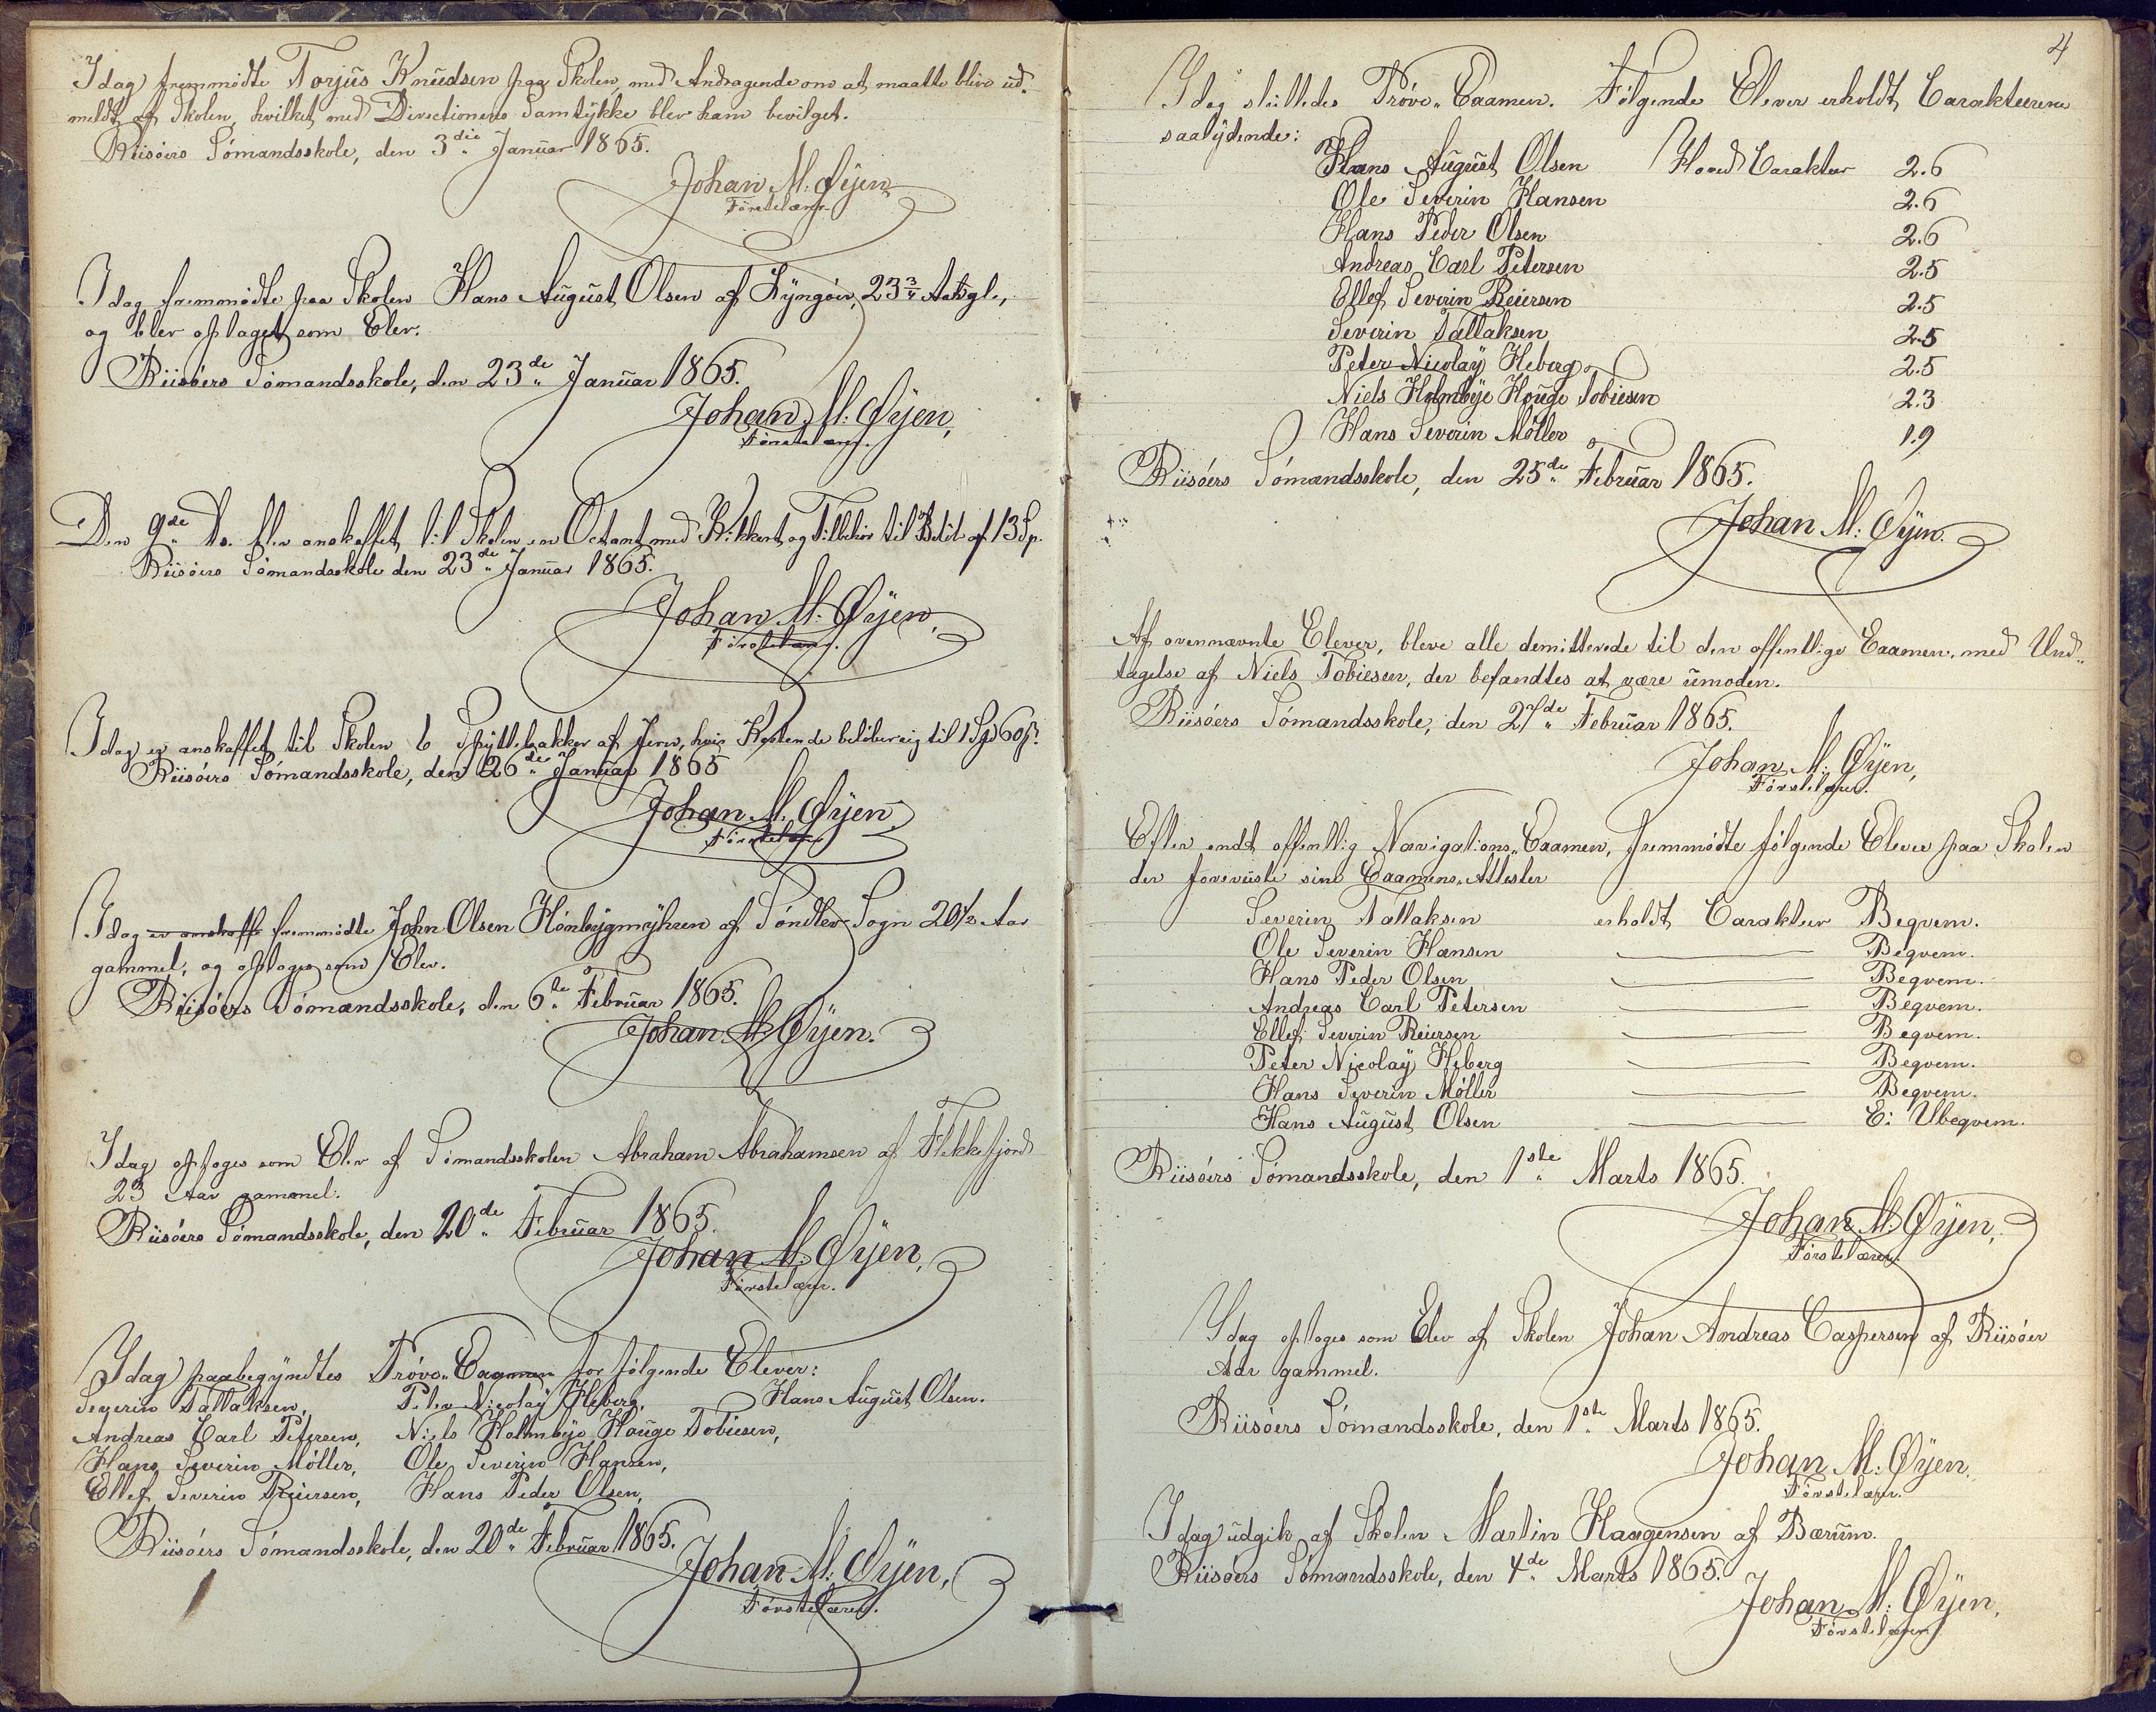 Idag fremmødte Torjus Knudsen paa Skolen, med Andragende om at maatte blive ud-
meldt af Skolen, hvilket med Directionens Samtykke blev ham bevilget.
Riisöers Sömandsskole, den 3die Januar 1865.
Johan M. Øyen
Förstelærer.
Idag fremmödte paa Skolen Hans August Olsen af Lyngöer, 23 3/4 Aar gl.,
og blev optaget som Elev.
Riisöers Sömandsskole, den 23de Januar 1865.
Johan M. Øyen,
Förstelærer.
Den 9de ds. blev anskaffet til Skolen en Octant med Kikkert og Tilbehör til Belöb af 13 Sp.
Riisöers Sömandsskole den 23de Januar 1865.
Johan M. Øyen,
Förstelærer.
Idag er anskaffet til Skolen 6 Spyttebakker af Jern, hvis Kostende belöber sig til 1 Spd 60 s.
Riisöers Sömandsskole, den 26de Januar 1865
Johan M. Øyen
Förstelærer
Idag er anskaffe fremmödte John Olsen Hönbygmyhren af Söndlev Sogn 20 1/2 Aar
gammel, og optoges som Elev.
Riisöers Sömandsskole, den 6te Februar 1865.
Johan M. Øyen.
Idag optoges som Elev af Sömandsskolen Abraham Abrahamsen af Flekkefjord
23 Aar gammel.
Riisöers Sömandsskole, den 20de Februar 1865.
Johan M. Øyen,
Förstelærer.
Idag paabegyndtes Pröve-Examen for fölgende Elever:
Severin Tallaksen, Peter Nicolay Heberg, Hans August Olsen.
Andreas Carl Petersen, Niels Holmbye Houge Tobiesen,
Hans Severin Möller, Ole Severin Hansen,
Ellef Severin Reiersen, Hans Peder Olsen,
Riisöers Sömandsskole, den 20de Februar 1865.
Johan M. Øyen,
Förstelærer.
4
Idag sluttedes Pröve-Examen. Fölgende Elever erholdt Caraktererne
saalydende:
Hans August Olsen Hoved Carakter 2.6
Ole Severin Hansen 2.6
Hans Peder Olsen 2.6
Andreas Carl Petersen 2.5
Ellef Severin Reiersen 2.5
Severin Tallaksen 2.5
Peter Nicolay Heberg 2.5
Niels Holmbye Houge Tobiesen 2.3
Hans Severin Möller 1.9
Riisöers Sömandsskole, den 25de Februar 1865.
Johan M. Øyen.
Af ovennævnte Elever, bleve alle demitterede til den offentlige Examen, med Und-
tagelse af Niels Tobiesen, der befandtes at være umoden.
Riisöers Sömandsskole, den 27de Februar 1865.
Johan M. Øyen,
Förstelærer.
Efter endt offentlig Navigations-Examen, fremmödte fölgende Elever paa Skolen
der foreviiste sine Examens-Attester
Severin Tallaksen erholdt Carakter Beqvem.
Ole Severin Hansen — Beqvem.
Hans Peder Olsen — Beqvem.
Andreas Carl Petersen — Beqvem.
Ellef Severin Reiersen — Beqvem.
Peter Nicolay Heberg — Beqvem.
Hans Severin Möller — Beqvem.
Hans August Olsen — Ei Ubeqvem.
Riisöers Sömandsskole, den 1ste Marts 1865.
Johan M. Øyen,
Förstelærer
Idag optoges som Elev af Skolen Johan Andreas Caspersen af Riisöer
Aar gammel.
Riisöers Sömandsskole, den 1ste Marts 1865.
Johan M. Øyen.
Förstelærer.
Idag udgik af Skolen Martin Haagensen af Bærum.
Riisöers Sömandsskole, den 4de Marts 1865.
Johan M. Øyen,
Förstelærer